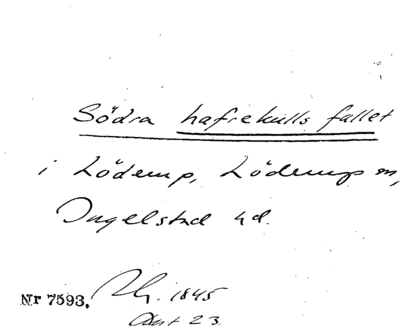 Södra hafrekulls fallet
i Löderup, Löderups sn,
Ingelstad hd.
Nr 7593. 1845
Akt 23